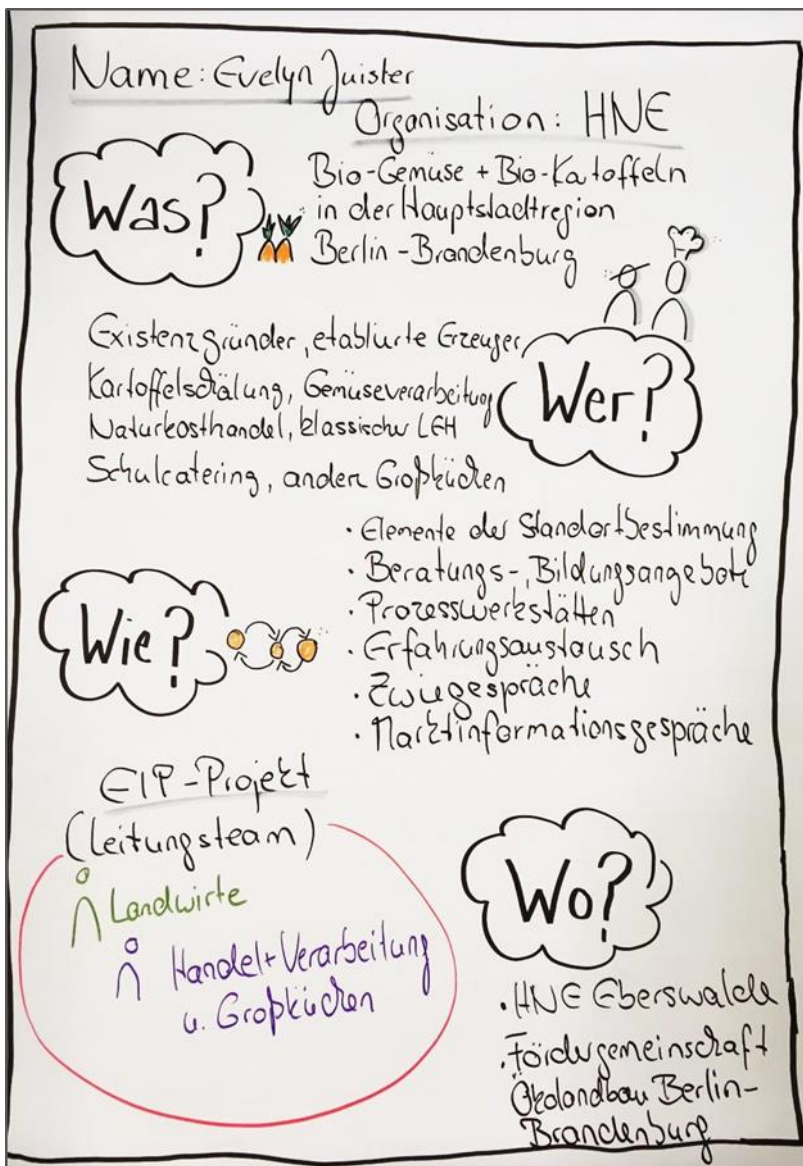 Name: Evelyn Juister
Organisation: HNE
Was?
Bio-Gemüse + Bio-Katoffeln
in der Hauptstadtregion
Berlin-Brandenburg
Existenzgründer, etablierte Erzeuger,
Kartoffelschälung, Gemüseverarbeitung
Naturkosthandel, klassischer LEH
Schulcatering, andere Großküchen
Wer?
Wie?
· Elemente der Standortbestimmung
· Beratungs-, Bildungsangebote
· Prozesswerkstätten
· Erfahrungsaustausch
· Zwiegespräche
· Marktinformationsgespräche
EIP-Projekt
(Leitungsteam)
Landwirte
Handel+Verarbeitung
u. Großküchen
Wo?
· HNE Eberswalde
· Fördergemeinschaft
Ökolandbau Berlin-
Brandenburg